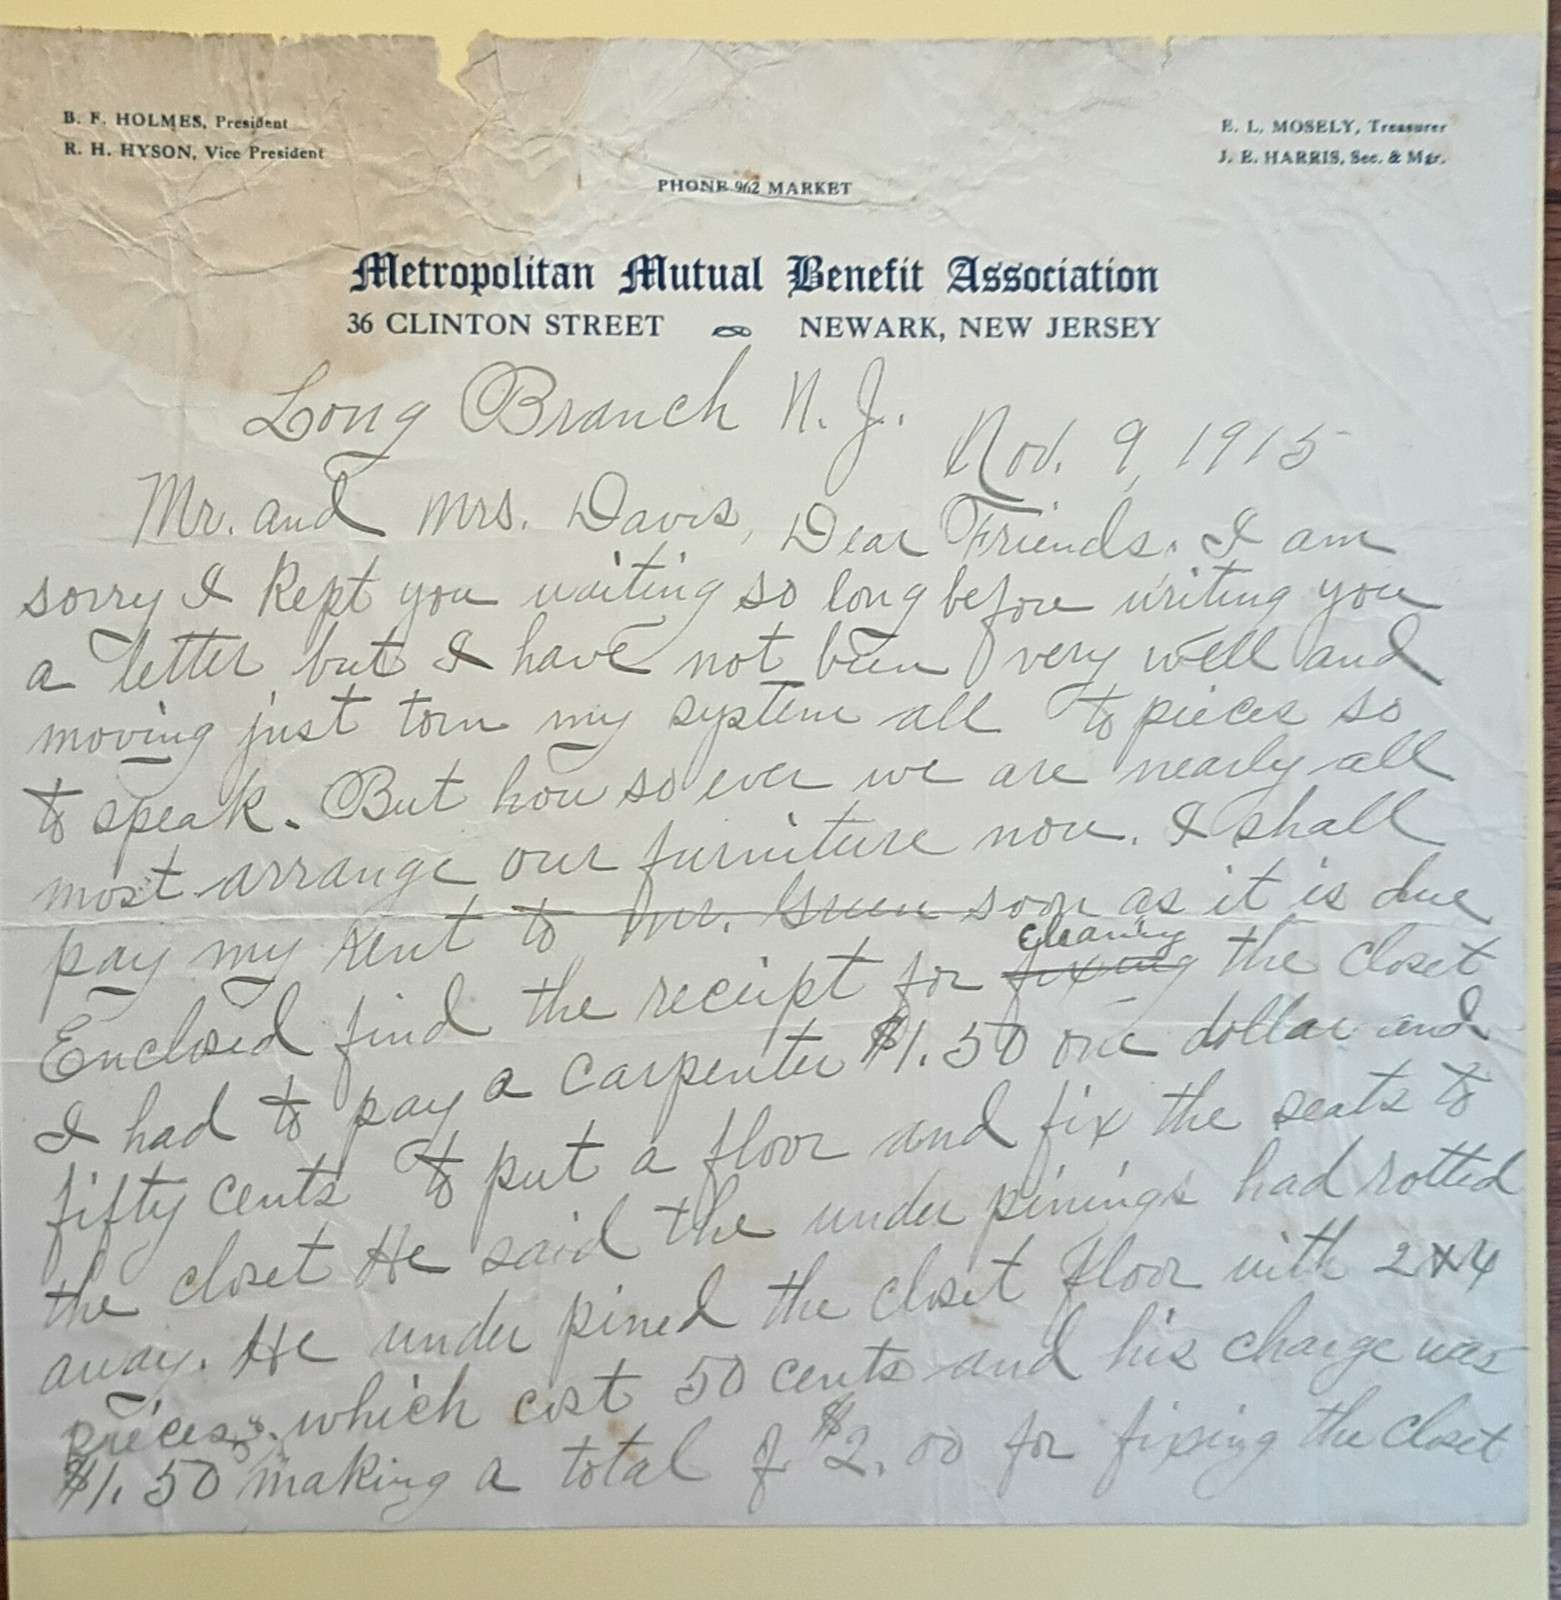 B. F. HOLMES, President
R. H. HYSON, Vice President
E. L. MOSELY, Treasurer
J. E. HARRIS, Sec. & Mgr.
PHONE 962 MARKET
Metropolitan Mutual Benefit Association
36 CLINTON STREET NEWARK, NEW JERSEY
Long Branch N. J. Nov. 9, 1915
Mr. and Mrs. Davis, Dear Friends. I am
sorry I kept you waiting so long before writing you
a letter, but I have not been very well and
moving just torn my system all to pieces so
to speak. But how so ever we are nearly all
most arrange our furniture now. I shall
pay my rent to Mr. Green soon as it is due
cleaning
Enclosed find the receipt for fixing the closet
I had to pay a carpenter $1.50 one dollar and
fifty cents to put a floor and fix the seats to
the closet He said the under pinings had rotted
away. He under pined the closet floor with 2x4
pieces which cost 50 cents and his charge was
$1.50 making a total of $2.00 for fixing the closet